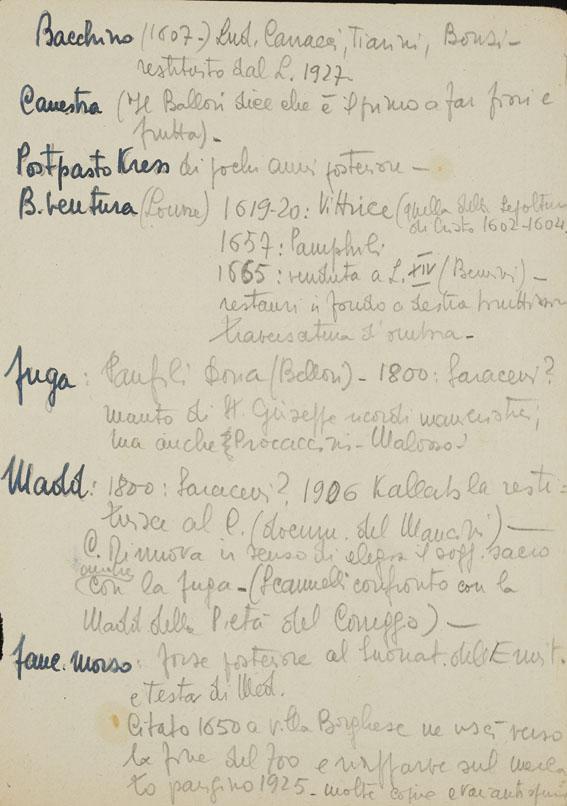 Bacchino (1607-) Lud. Carracci, Tiarini, Bonsi-
restituito dal L. 1927
Canestra (Il Bellori dice che è il primo a far fiori e
frutta)-
Postpasto Kress di pochi anni posteriore -
B. Ventura (Louvre) 1619-20: Vittrice (quella della Sepoltura
di Cristo 1602-1604
1657: Pamphili
1665: venduta a L. XIV (Bernini) -
restauri in fondo a destra
traversatura d'ombra-
Fuga: Panfili Doria (Bellori) - 1800: Saraceni?
manto di S. Giuseppe ricordi manieristici,
ma anche Procaccini - Malosso-
Madd: 1800: Saraceni?, 1906 Kallab la resti-
tuisce al C. (docum. del Mancini) —
C. Rinnova in senso di elegia il sogg. sacro
anche
con la fuga - (Scannelli confronto con la
Madd della Pietà del Correggio) —
Fanc. morso: forse posteriore al Suonat. dell'Ermit.
e testa di Med.
Citato 1650 a villa Borghese ne uscì verso
la fine del 700 e riapparve sul merca
to parigino 1925 - molte copie e varianti